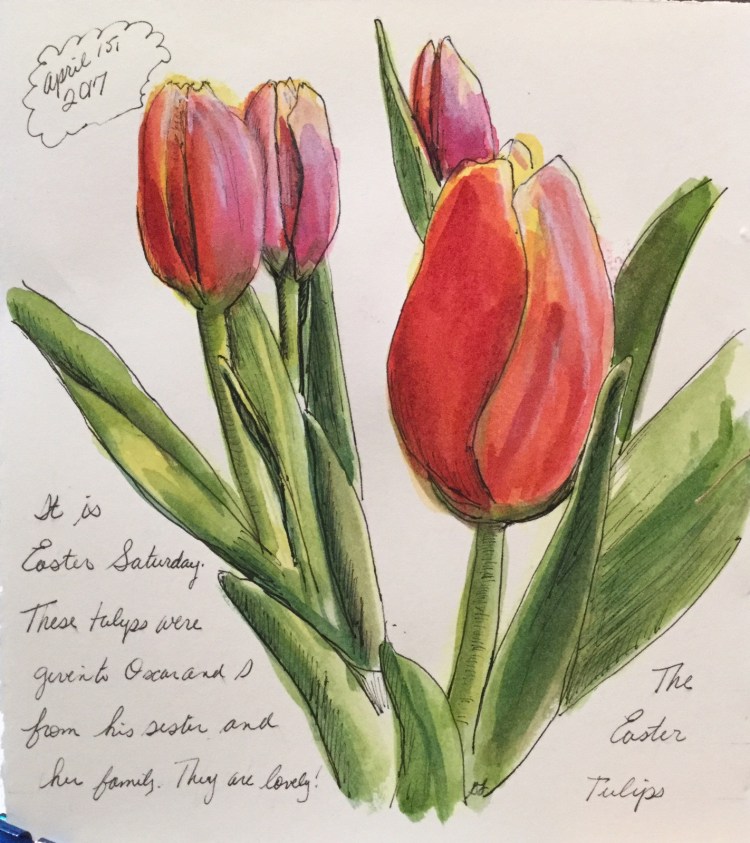 April 15,
2017
It is
Easter Saturday.
These tulips were
given to Oscar and I
from his sister and
her family. They are lovely!
The
Easter
Tulips